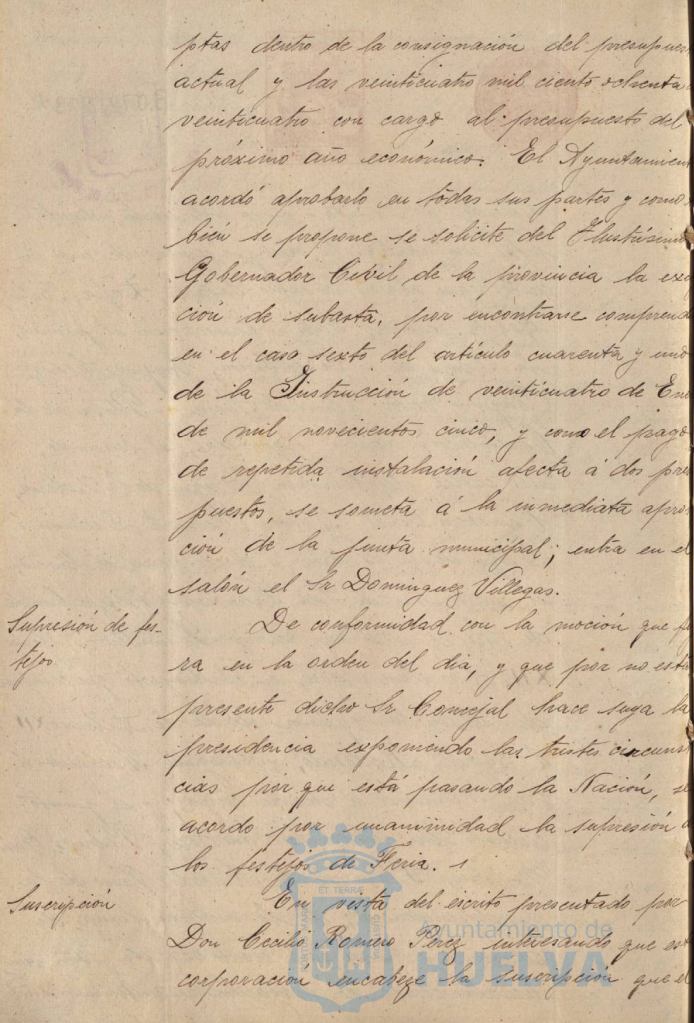 ptas dentro de la consignación del presupues
actual y las veinticuatro mil ciento ochenta
veinticuatro con cargo al presupuesto del
próximo año económico. El Ayuntamient
acordó aprobarlo en todas sus partes y como
bién se propone se solicite del Ilustrísimo
Gobernador Civil de la provincia la exe
ción de subasta, por encontrarse comprend
en el caso sexto del artículo cuarenta y uno
de la Instrucción de veinticuatro de Ene
de mil novecientos cinco, y como el pago
de repetida instalación afecta á dos pre
puestos, se someta á la inmediata apro
ción de la junta municipal; entra en el
salón el Sr Dominguez Villegas.
Supresión de fes-
tejos
De conformidad con la moción que fi
ra en la orden del dia, y que por no esta
presente dicho Sr Concejal hace suya la
presidencia exponiendo las tristes circuns
cias por que está pasando la Nación, se
acordo por unanimidad la supresión d
los festejos de Feria.
Suscripción
En vista del escrito presentado por
Don Cecilio Romero Pérez interesando que es
corporación encabeze la suscripción que el
Ayuntamiento de
HUELVA